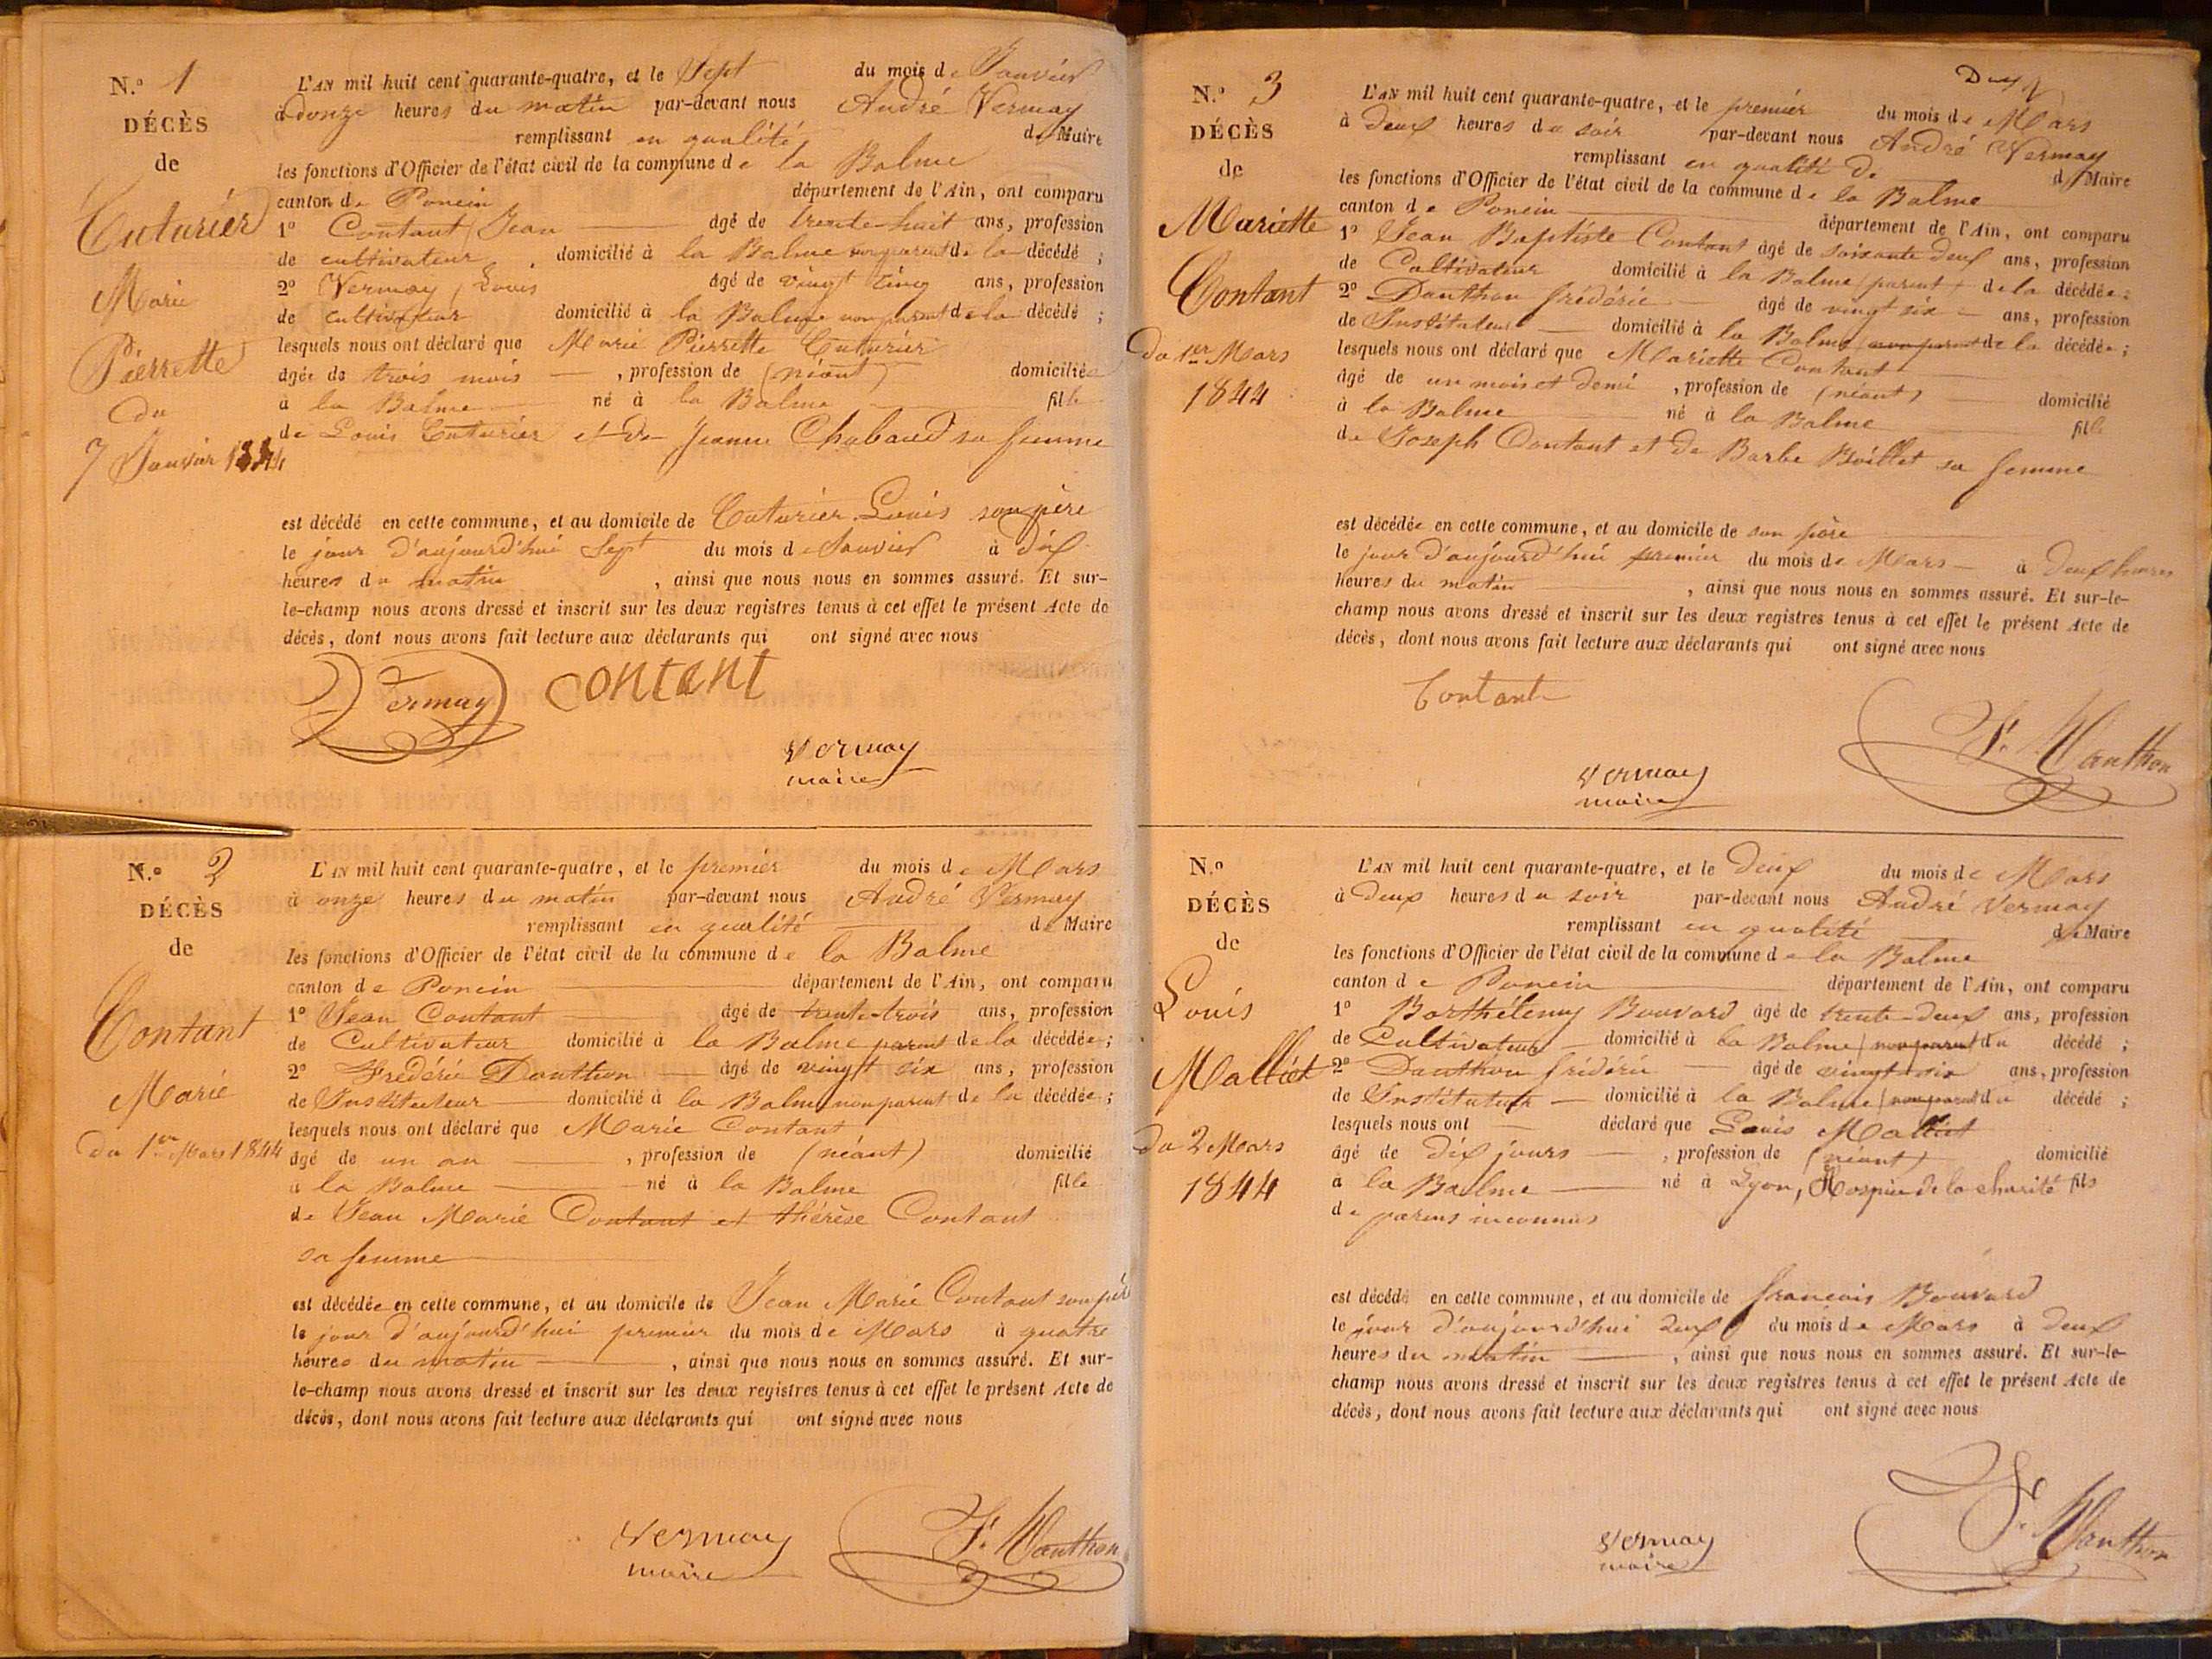 N.o 1
DÉCÈS
de
Cuturier
Marie
Pierrette
du
7 Janvier 1844
L'AN mil huit cent quarante-quatre, et le Sept du mois de Janvier
à donze heures du matin par-devant nous André Vermay
remplissant en qualité de Maire
les fonctions d'Officier de l'état civil de la commune de la Balme
canton de Poncin département de l'Ain, ont comparu
1o Contant Jean âgé de trente-huit ans, profession
de cultivateur, domicilié à la Balme non parent de la décédé;
2o Vermay Louis âgé de vingt cinq ans, profession
de cultivateur domicilié à la Balme non parent de la décédé;
lesquels nous ont déclaré que Marie Pierrette Cuturier
âgée de trois mois, profession de (néant) domiciliée
à la Balme né à la Balme fille
de Louis Cuturier et de Jeanne Chabaud sa femme
est décédé en cette commune, et au domicile de Cuturier Louis son père
le jour d'aujourd'hui Sept du mois de Janvier à dix
heures du matin, ainsi que nous nous en sommes assuré. Et sur-
le-champ nous avons dressé et inscrit sur les deux registres tenus à cet effet le présent Acte de
décès, dont nous avons fait lecture aux déclarants qui ont signé avec nous
Vermay contant
vermay
maire
N.o 2
DÉCÈS
de
Contant
Marie
Du 1er Mars 1844
L'AN mil huit cent quarante-quatre, et le premier du mois de Mars
à onze heures du matin par-devant nous André Vermay
remplissant en qualité de Maire
les fonctions d'Officier de l'état civil de la commune de la Balme
canton de Poncin département de l'Ain, ont comparu
1o Jean Contant âgé de trente-trois ans, profession
de Cultivateur domicilié à la Balme parent de la décédée;
2o Frédéric Danthon âgé de vingt six ans, profession
de Instituteur domicilié à la Balme non parent de la décédée;
lesquels nous ont déclaré que Marie Contant
âgé de un an, profession de (néant) domicilié
à la Balme né à la Balme fille
de Jean Marie Contant et thérèse Contant
sa femme
est décédée en cette commune, et au domicile de Jean Marie Contant son père
le jour d'aujourd'hui premier du mois de Mars à quatre
heures du matin, ainsi que nous nous en sommes assuré. Et sur-
le-champ nous avons dressé et inscrit sur les deux registres tenus à cet effet le présent Acte de
décès, dont nous avons fait lecture aux déclarants qui ont signé avec nous
vermay F. Danthon
maire
N.o 3
DÉCÈS
de
Mariette
Contant
Du 1er Mars
1844
L'AN mil huit cent quarante-quatre, et le premier du mois de Mars
à deux heures du soir par-devant nous André Vermay
remplissant en qualité de de Maire
les fonctions d'Officier de l'état civil de la commune de la Balme
canton de Poncin département de l'Ain, ont comparu
1o Jean Baptiste Contant âgé de soixante deux ans, profession
de Cultivateur domicilié à la Balme parent de la décédée;
2o Danthon frédéric âgé de vingt six ans, profession
de Instituteur domicilié à la Balme non parent de la décédée;
lesquels nous ont déclaré que Mariette Contant
âgé de un mois et demi, profession de (néant) domicilié
à la Balme né à la Balme fille
de Joseph Contant et de Barbe Boillet sa femme
est décédée en cette commune, et au domicile de son père
le jour d'aujourd'hui premier du mois de Mars à deux heures
heures du matin, ainsi que nous nous en sommes assuré. Et sur-le-
champ nous avons dressé et inscrit sur les deux registres tenus à cet effet le présent Acte de
décès, dont nous avons fait lecture aux déclarants qui ont signé avec nous
Contant
F. Danthon
vermay
maire
N.o
DÉCÈS
de
Louis
Malliet
Du 2 Mars
1844
L'AN mil huit cent quarante-quatre, et le deux du mois de Mars
à deux heures du soir par-devant nous André Vermay
remplissant en qualité de Maire
les fonctions d'Officier de l'état civil de la commune de la Balme
canton de Poncin département de l'Ain, ont comparu
1o Barthélemy Bouvard âgé de trente-deux ans, profession
de Cultivateur domicilié à la Balme non parent du décédé;
2o Danthon frédéric âgé de vingt six ans, profession
de Instituteur domicilié à la Balme non parent du décédé;
lesquels nous ont déclaré que Louis Malliet
âgé de dix jours, profession de (néant) domicilié
à la Balme né à Lyon, Hospice de la charité fils
de parens inconnus
est décédé en cette commune, et au domicile de francois Bouvard
le jour d'aujourd'hui deux du mois de Mars à deux
heures du matin, ainsi que nous nous en sommes assuré. Et sur-le-
champ nous avons dressé et inscrit sur les deux registres tenus à cet effet le présent Acte de
décès, dont nous avons fait lecture aux déclarants qui ont signé avec nous
vermay F. Danthon
maire